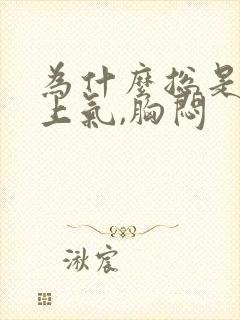 為什麼總是
上氣,胸悶
湫宸